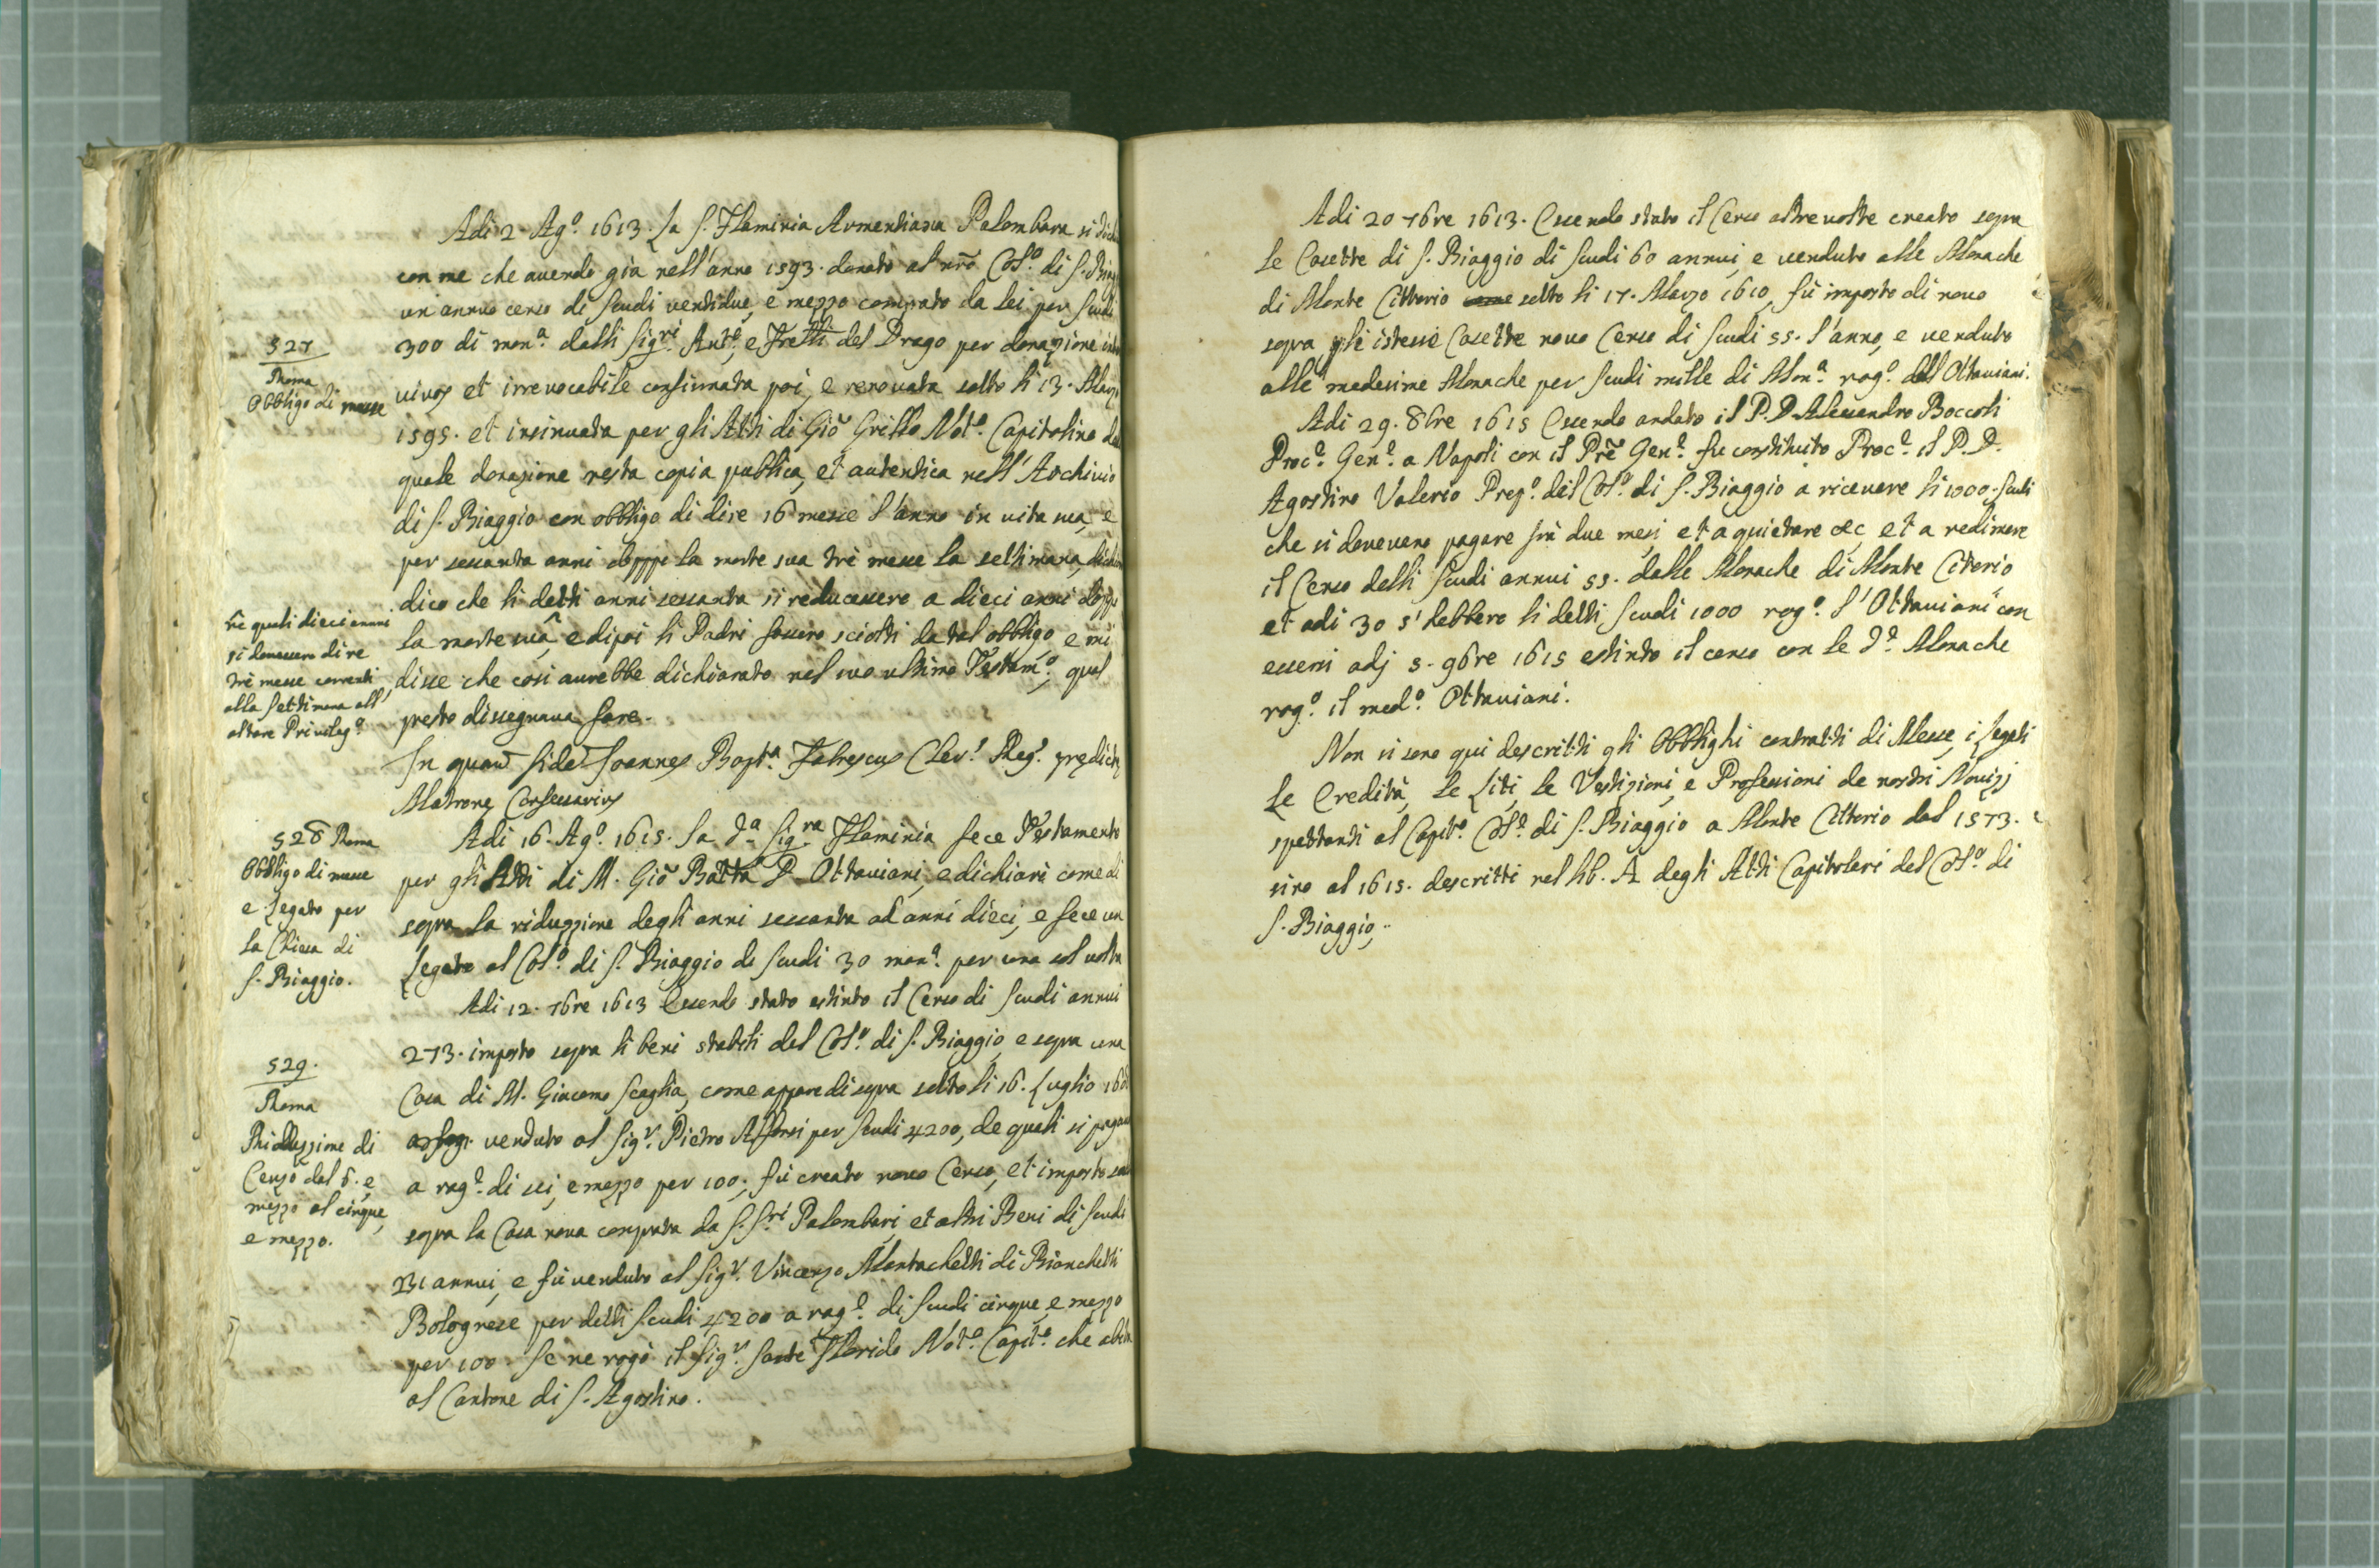 Adi 2. Ag.º 1613. La S. Flaminia Armentiana Palombara si
con me che avendo già nell'anno 1593. donato al nrõ Col.º di S.
un annuo censo di scudi ventidue, e mezzo comprato da lei per scudi
527
Roma
Obbligo di messe
300 di mon.ª dalli Sig.ri Ant.º, e Frelli del Drago per donazione
vivos et irrevocabile confirmata poi, e renovata sotto li 13. Marzo
1595. et insinuata per gli Atti di Giõ Grillo Not.º Capitolino
quale donazione resta copia publica, et autentica nell'Archivio
di S. Biaggio con obbligo di dire 16 messe l'anno in vita sua, e
per sessanta anni doppo la morte sua trè messe la settimana,
dico che li detti anni sessanta si reducessero a dieci anni doppo
nè quali dieci anni
si dovessero dire
trè messe correnti
alla settimana all'
altare Privileg.º
la morte sua, e dipoi li Padri fossero sciolti da tal obbligo, e mi
disse che così avrebbe dichiarato nel suo ultimo Testam.º, qual
presto dissegnava fare.
In quorũ fidẽ Joannes Bapt.ª Cler.s Reg.s predictę
Matronę Confessarius
528 Roma
Obbligo di messe
e Legato per
la Chiesa di
S. Biaggio.
Adi 16. Ag.º 1615. la d.ª Sig.ra Flaminia fece Testamento
per gli Atti di M. Giõ Batta P. Ottaviani, e dichiarò come di
sopra la riduzzione degli anni sessanta ad anni dieci, e fece un
Legato al Col.º di S. Biaggio di scudi 30 mon.ª per una sol volta
Adi 12. 7bre 1613 Essendo stato estinto il Censo di scudi annui
529.
Roma
Riduzzione di
Censo dal 6. e
mezzo al cinque,
e mezzo.
273. imposto sopra li beni stabili del Col.º di S. Biaggio, e sopra una
Casa di M. Giacomo Scaglia, come appare di sopra sotto li 16. Luglio
venduto al Sig.r Pietro per scudi 4200, de quali si pagava
a rag.e di sei, e mezzo per 100; fù creato novo Censo, et imposto
sopra la Casa nova comprata da S. S.ri Palombari, et altri Beni di scudi
231 annui, e fù venduto al Sig.r Vincenzo Montachetti di Bianchetti
Bolognese per detti scudi 4200 a rag.e di scudi cinque, e mezzo
per 100. Se ne rogò il Sig.r Sante Florido Not.º Capit.º che abita
al Cantone di S. Agostino.
Adi 20 7bre 1613. Essendo stato il Censo altre volte creato sopra
le Casette di S. Biaggio di scudi 60 annui, e venduto alle Monache
di Monte Cittorio sotto li 17. Marzo 1610, fù imposto di novo
sopra gli istesse Casette novo Censo di scudi 55. l'anno, e venduto
alle medesime Monache per scudi mille di Mon.ª rog.º dall'Ottaviani.
Adi 29. 8bre 1615 Essendo andato il P. D. Alessandro Boccoli
Proc.e Gen.e a Napoli con il Prẽ Gen.e fu constituito Proc.e il P. D.
Agostino Valerio Prep.º del Col.º di S. Biaggio a ricevere li 1000. scudi
che si dovevano pagare frà due mesi et a quietare &c, et a redimere
il Censo delli scudi annui 55. dalle Monache di Monte Citorio
et adi 30 s'hebbero li detti scudi 1000 rog.º l'Ottaviani con
essersi adj 5. 9bre 1615 estinto il censo con le d.e Monache
rog.º il med.º Ottaviani.
Non si sono qui descritti gli Obblighi contratti di Messe, i Legati
le Eredità, le Liti, le Vestizioni, e Professioni de nostri Novizj
spettanti al Capit.º Col.e di S. Biaggio a Monte Cittorio dal 1573.
sino al 1615. descritti nel lib. A degli Atti Capitolari del Col.º di
S. Biaggio.